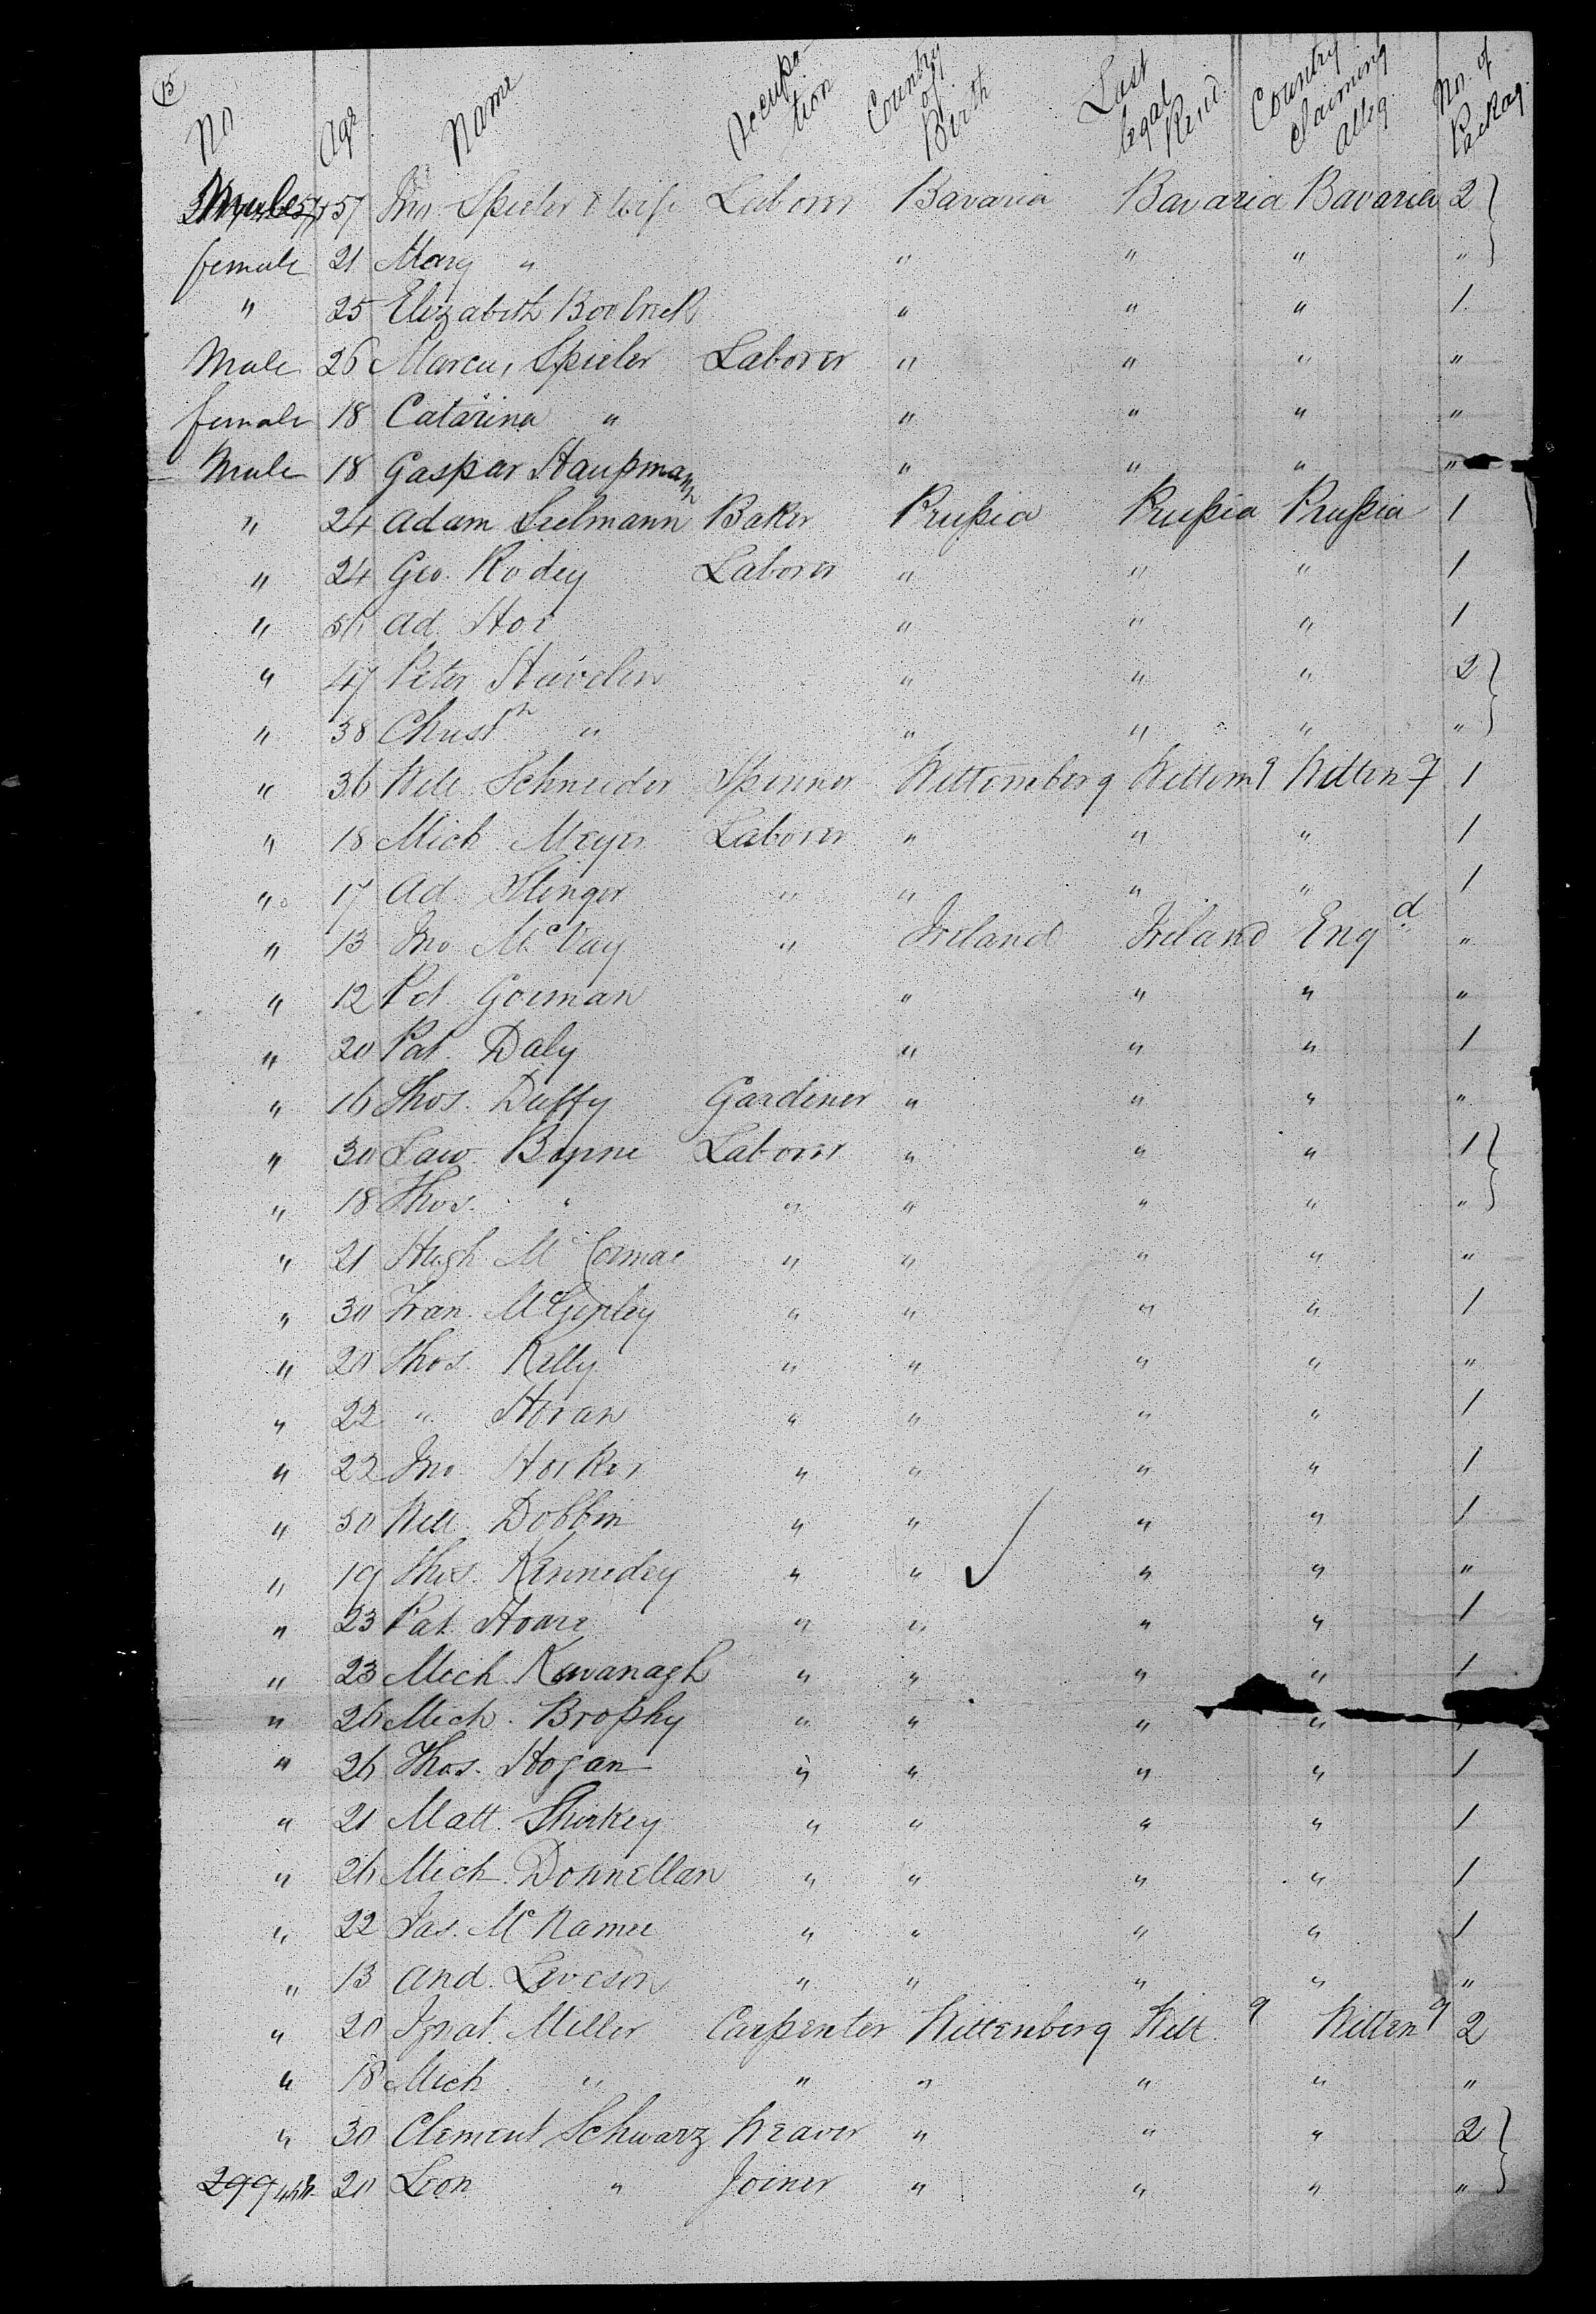 15
No Age Name Occupation Country of Birth Last legal Resid. Country claiming alleg No. of Packag.
Male 57 Jno Spieler & wife Laborer Bavaria Bavaria Bavaria 2
female 21 Mary " " " " "
" 25 Elizabeth " " " 1
Male 26 Marcus Spieler Laborer " " " "
female 18 Catarina " " " " "
Male 18 Gaspar Haupmann " " " "
" 24 Adam Sielmann Baker Prußia Prußia Prußia 1
" 24 Geo. Rodey Laborer " " " 1
" Ad. Hor " " " 1
" 47 Peter " " " 2
" 38 Christn " " " " "
" 36 Will Schneider Spinner Wittemberg Wittemg Wittemg 1
" 18 Mich Meyer Laborer " " " 1
" 17 Ad. Slinger " " " " 1
" 13 Jno McVay " Ireland Ireland Engd "
" 12 Pat Gorman " " " "
" 20 Pat. Daly " " " 1
" 16 Thos. Duffy Gardiner " " " "
" 30 Law. Byrne Laborer " " " 1
" 18 Thos. " " " " " "
" 21 Hugh McCormac " " " " "
" 30 Fran. McGinley " " " " 1
" 20 Thos. Kelly " " " " "
" 22 " Horan " " " " 1
" 22 Jno Horker " " " " 1
" 30 Will Dobbin " " " " 1
" 19 Thos. Kennedey " " " " "
" 23 Pat Hoare " " " " 1
" 23 Mich. Kavanagh " " " " 1
" 26 Mich. Brophy " " " "
" 26 Thos. Hogan " " " " 1
" 21 Matt. Shirkey " " " " 1
" 26 Mich Donnellan " " " " 1
" 22 Jas. McNamee " " " " 1
" 13 And. Leveson " " " " "
" 20 Ignat. Miller Carpenter Wittenberg Witt.g Witteng 2
" 18 Mich " " " " " "
" 30 Clement Schwarz Weaver " " " 2
299 20 Leon " Joiner " " " "